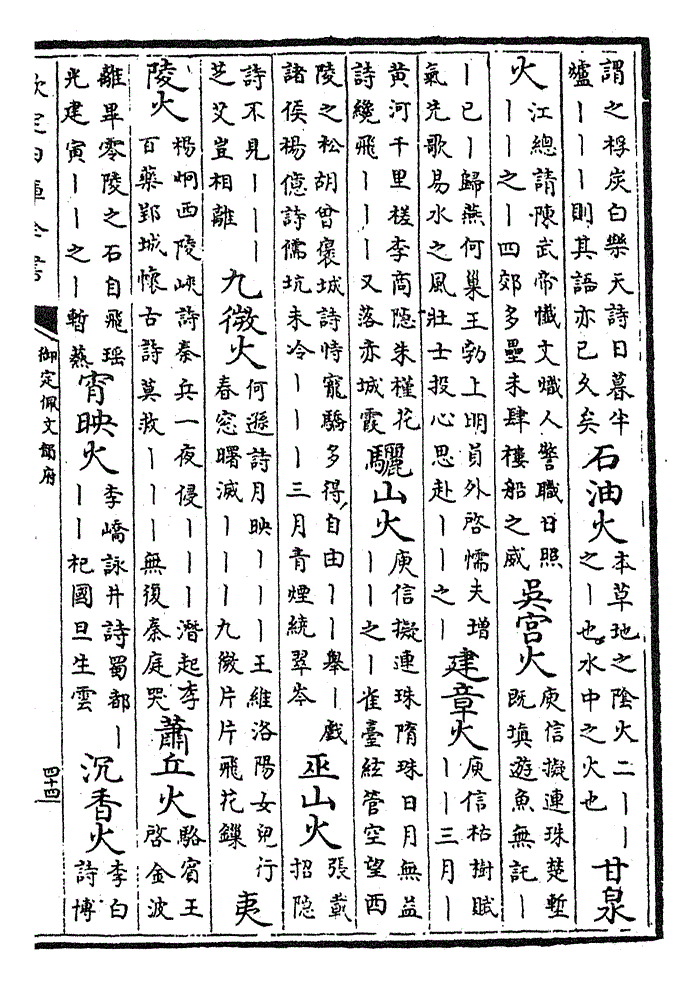 謂之桴炭白樂天詩日暮半
爐｜｜｜則其語亦已久矣
石油火
本草地之陰火二｜｜
之｜也水中之火也
甘泉
火
江總請陳武帝懺文職人警職日照
｜｜之｜四郊多壘未肆樓船之威
吳宮火
庾信擬連珠楚塹
既填遊魚無託｜
｜已｜歸燕何巢王勃上明員外啓懦夫增
氣先歌易水之風壯士投心思赴｜｜之｜
建章火
庾信枯樹賦
｜｜三月｜
黄河千里槎李商隠朱槿花
詩纔飛｜｜｜又落赤城霞
驪山火
庾信擬連珠隋珠日月無益
｜｜之｜雀臺絃管空望西
陵之松胡曾襃城詩恃寵驕多得自由｜｜舉｜戲
諸侯楊億詩儒坑未冷｜｜｜三月青煙繞翠岑
巫山火
張載
招隠
詩不見｜｜｜
芝艾豈相離
九微火
何遜詩月映｜｜｜王維洛陽女兒行
春窓曙滅｜｜｜九微片片飛花鏁
夷
陵火
楊炯西陵峽詩秦兵一夜侵｜｜｜潛起李
百藥郢城懷古詩莫救｜｜｜無復秦庭哭
蕭丘火
駱賓王
啓金波
離畢零陵之石自飛瑶
光建寅｜｜之｜暫爇
宵映火
李嶠詠井詩蜀都｜
｜｜杞國旦生雲
沉香火
李白
詩博
欽定四庫全書
御定佩文韻府
四十四